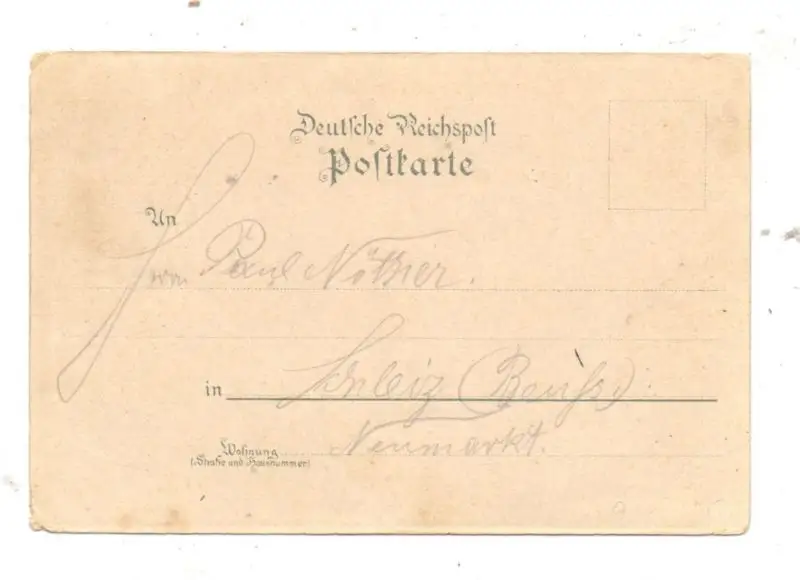 Deutsche Reichspost
Postkarte
An
Herrn Paul Nöthner.
in Schleiz (Reuss)
Neumarkt.
Wohnung
(Straße und Hausnummer)